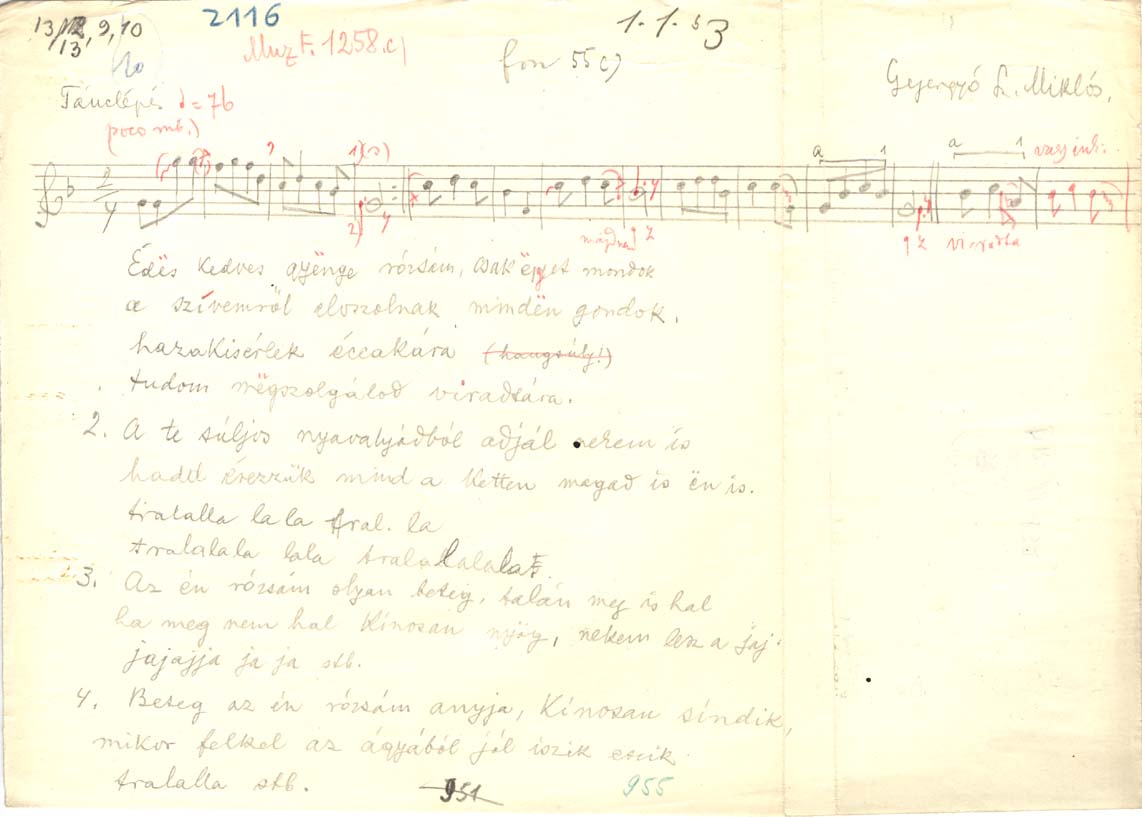 13/12, 9, 10
13
2116
1.1.53
Muz F. 1258.c)
fon 55c)
Gyergyó Sz. Miklós.
Tánclépés ♩=76
poco
1)
2)
a 1
a 1
vagy ink:
2
4
viradta
Édës kedves gyënge rózsám, csak ëgyet mondok
a szívemről eloszolnak mindën gondok.
hazakisérlek éccakára (hangsúly!)
tudom mëgszolgálod viradtára.
2. A te súljos nyavalyádból adjál nekem is
hadd érezzük mind a ketten magad is ën is.
tralalla la la tral. la
tralalala lala tralalalala
3. Az én rózsám olyan beteg, talán meg is hal
ha meg nem hal kínosan nyög, nekem lesz a jaj
jajajja ja ja stb.
4. Beteg az én rózsám anyja, kínosan sindik,
mikor felkel az ágyából jól iszik eszik
tralalla stb.
951
955